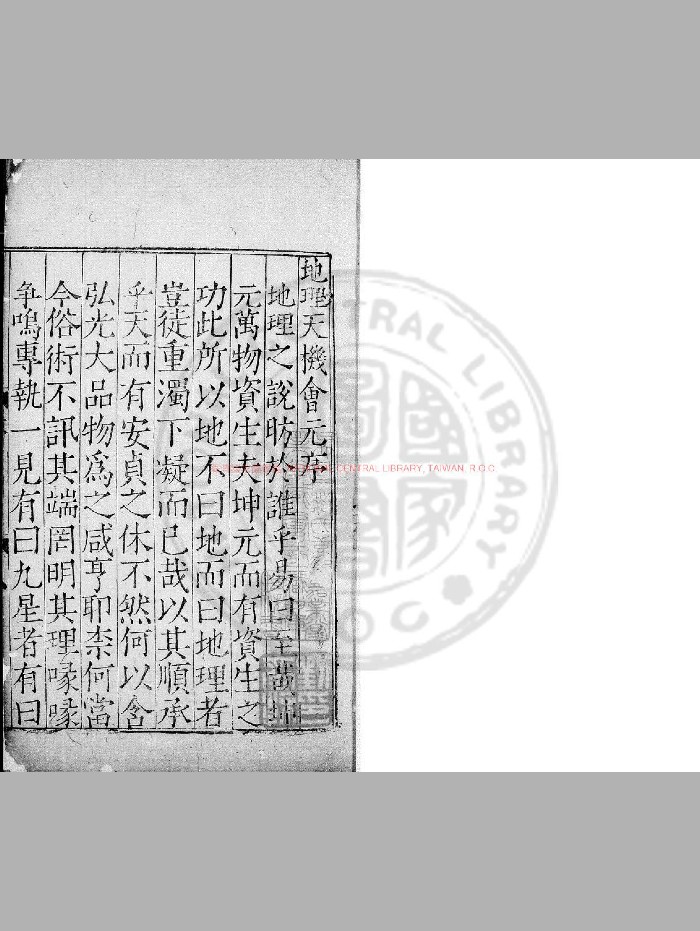 地理天機會元序
地理之說昉於誰乎易曰至哉坤
元萬物資生夫坤元而有資生之
功此所以地不曰地而曰地理者
豈徒重濁下凝而已哉以其順承
乎天而有安貞之休不然何以含
弘光大品物爲之咸亨耶柰何當
今俗術不訊其端罔明其理喙喙
争鳴專執一見有曰九星者有曰
CENTRAL LIBRARY, TAIWAN, R.O.C.
CENTRAL LIBRARY
R.O.C